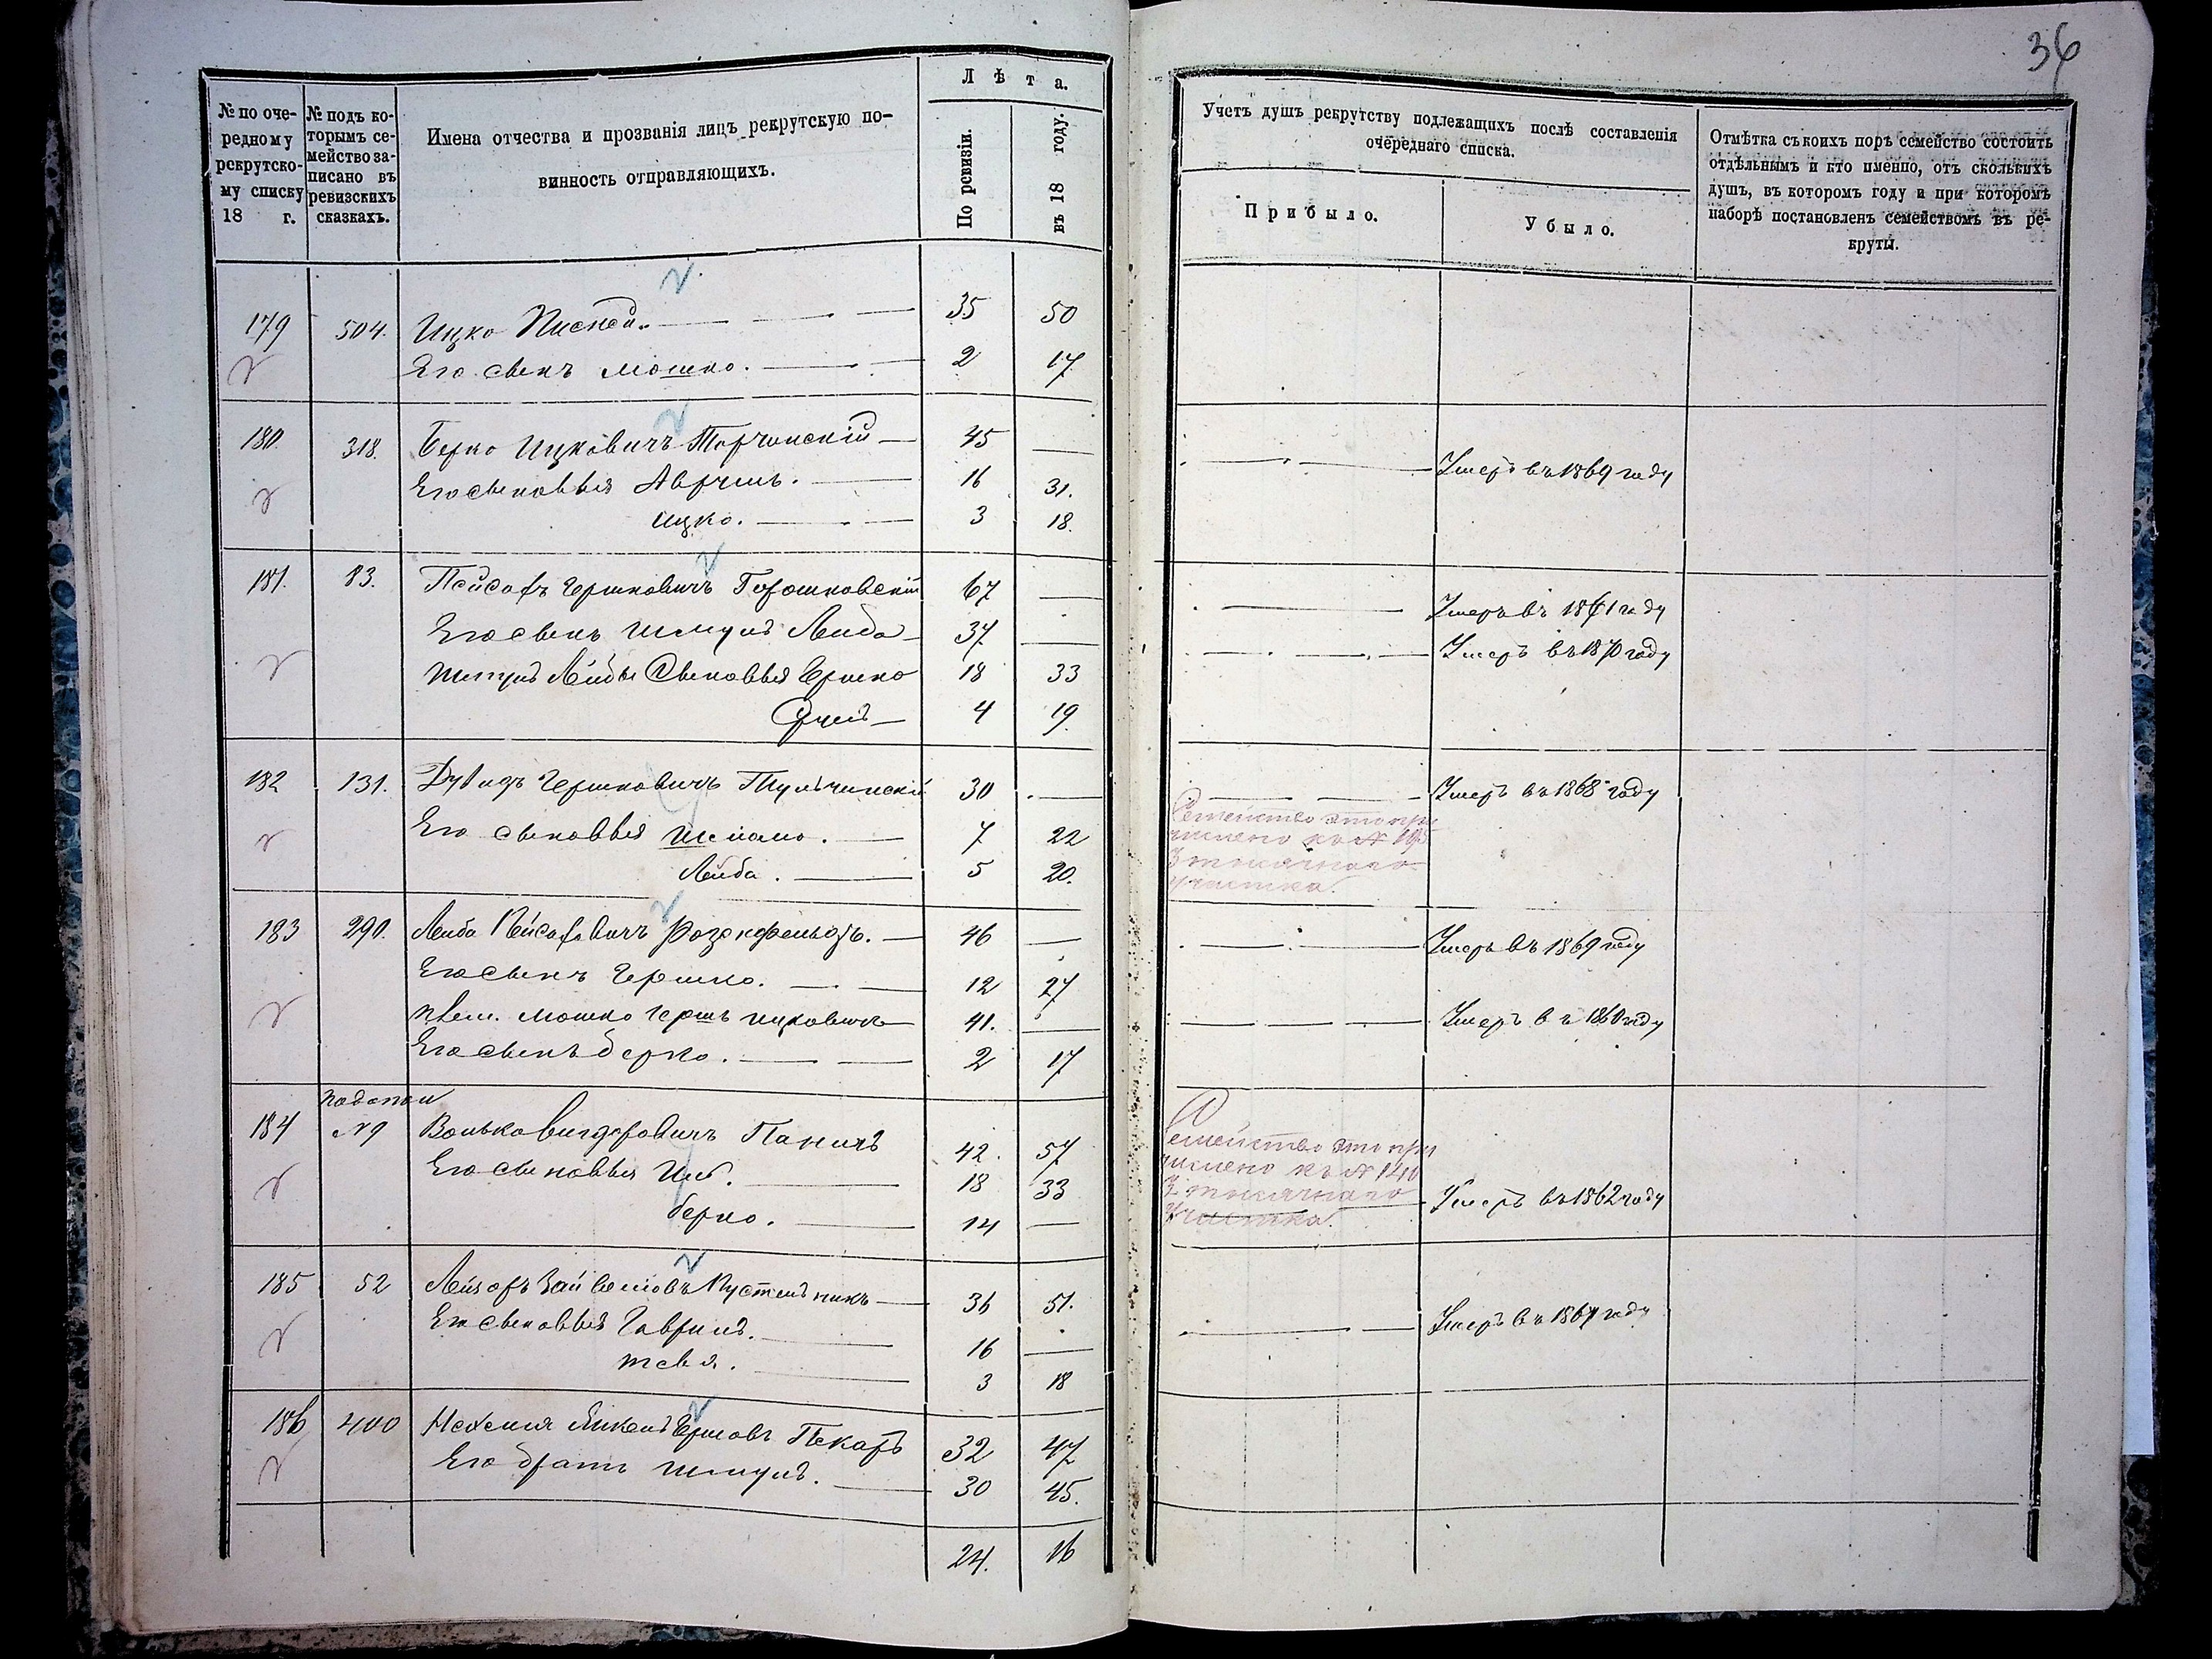 36
№ по оче-
редному
рекрутско-
му списку
18 г.
№ подъ ко-
торымъ се-
мейство за-
писано въ
ревизскихъ
сказкахъ.
Имена отчества и прозванія лицъ рекрутскую по-
винность отправляющихъ.
Лѣта.
По ревизіи.
въ 18 году.
Учетъ душъ рекрутству подлежащихъ послѣ составленія
очереднаго списка.
Прибыло.
Убыло.
Отмѣтка съ коихъ поръ семейство состоитъ
отдѣльнымъ и кто именно, отъ сколькихъ
душъ, въ которомъ году и при которомъ
наборѣ поставленъ семействомъ въ ре-
круты.
179 504. Ицко 35 50
Его сынъ Мошко. 2 17
180. 318. Берко Ицковичъ Торчинскій 45 — Умеръ въ 1869 году
Его сыновья Аврумъ. 16 31.
Ицко. 3 18.
181. 83. Пейсахъ Гершковичъ Горошковскій 67 — Умеръ въ 1861 году
Его сынъ Шмуль Лейба 37 — Умеръ въ 1870 году
Шмуль Лейбы Сыновья Ершко 18 33
Сруль 4 19.
182 131. Дувидъ Гершковичъ Тульчинскій 30 — Умеръ въ 1868 году
Его сыновья 7 22
Лейба. 5 20.
Семейство это при
числено къ № 195
3 тысячнаго
участка.
183 290. Лейба Пейсаховичъ Розенфельдъ. 46 — Умеръ въ 1869 году
Его сынъ Гершко. 12 27
плем. Мошко Гершъ Ицковичъ 41. — Умеръ въ 1860 году
Его сынъ Берко. 2 17
184 по допол № 9 Волько Вигдоровичъ Паничъ 42. 57
Его сыновья 18 33
Берко. 14 — Умеръ въ 1862 году
Семейство это при
числено къ № 140
3 тысячнаго
Участка.
185 52 Лейзоръ Зайвеловъ Пустельникъ 36 51.
Его сыновья Гаврилъ. 16 — Умеръ въ 1861 году
Тевя. 3 18
186 400 Нехемія Ершовъ Пекаръ 32 47
Его братъ Шмуль. 30 45.
24. 16